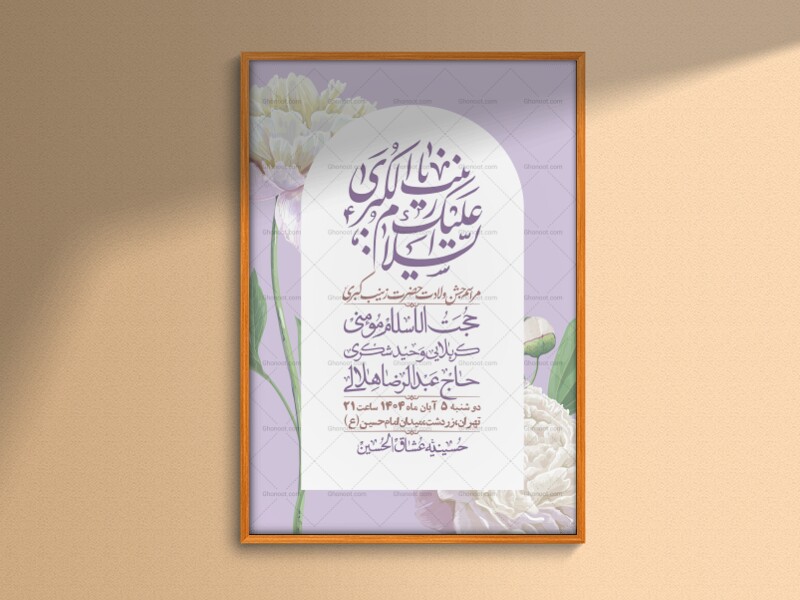 السلام علیک یا زینب الکبری
مراسم جشن ولادت حضرت زینب کبری
حجت الاسلام مومنی
کربلایی وحید شکری
حاج عبدالرضا هلالی
دوشنبه ۵ آبان ماه ۱۴۰۴ ساعت ۲۱
تهران، زردشت، میدان امام حسین (ع)
حسینیه عشاق الحسین
Ghonoot.com